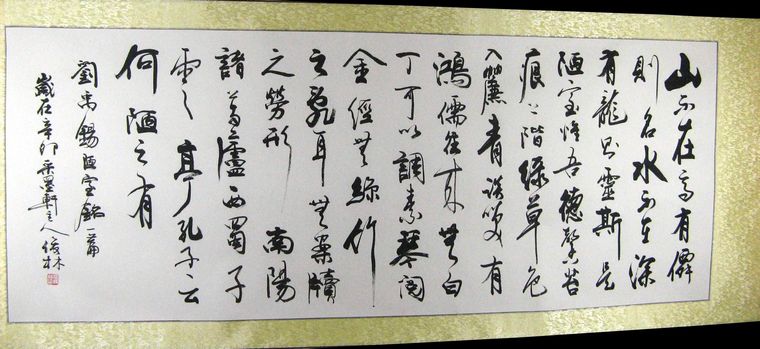 山不在高有僊
則名水不在深
有龍則靈斯是
陋室惟吾德馨苔
痕上階綠草色
入簾青談笑有
鴻儒往來無白
丁可以調素琴閱
金經無絲竹
之亂耳無案牘
之勞形 南陽
諸葛廬西蜀子
雲之亭孔子云
何陋之有
劉禹錫陋室銘一篇
歲在辛卯采墨軒主人俊林